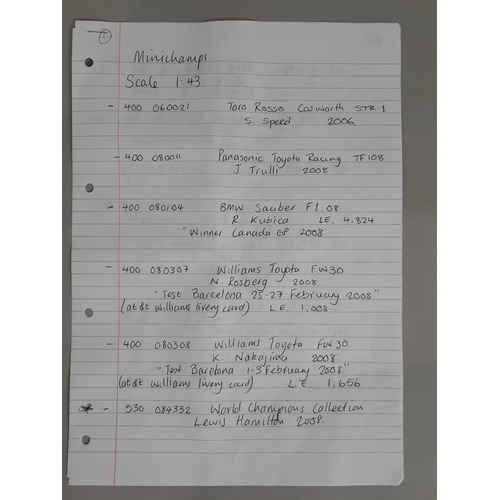 1
Minichamps
Scale 1-43
- 400 060021 Toro Rosso Cosworth STR 1
S. Speed 2006
- 400 080011 Panasonic Toyota Racing TF108
J Trulli 2008
- 400 080104 BMW Sauber F1.08
R Kubica LE. 4,824
"Winner Canada GP 2008
- 400 080307 Williams Toyota FW30
N Rosberg 2008
"Test Barcelona 25-27 February 2008"
(at&t Williams livery card) L.E. 1,008
- 400 080308 Williams Toyota FW30.
K. Nakajima 2008.
"Test Barcelona 1-3 February 2008"
(at&t Williams livery card) L.E. 1,656
* - 530 084332 World Champions Collection
Lewis Hamilton 2008.